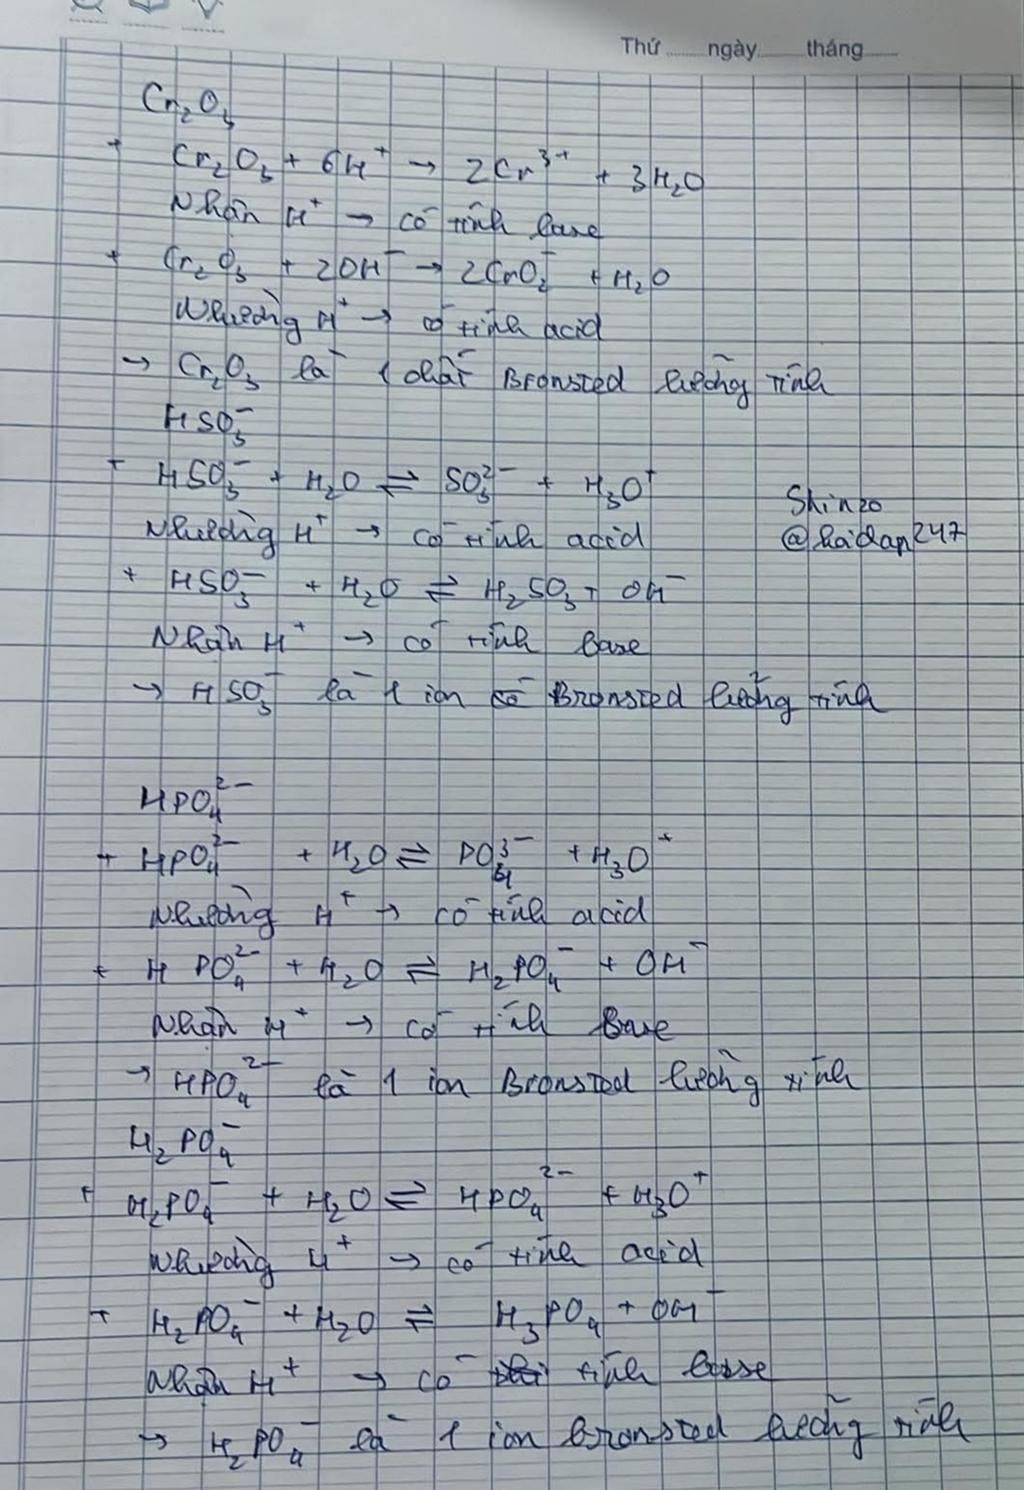 Thứ ...... ngày ...... tháng ......
Cr₂O₃
+ Cr₂O₃ + 6H⁺ → 2Cr³⁺ + 3H₂O
Nhận H⁺ → có tính base
+ Cr₂O₃ + 2OH⁻ → 2CrO₂⁻ + H₂O
Nhường H⁺ → có tính acid
→ Cr₂O₃ là 1 chất Bronsted lưỡng tính
HSO₃⁻
+ HSO₃⁻ + H₂O ⇌ SO₃²⁻ + H₃O⁺
Shinzo
Nhường H⁺ → có tính acid
@haidap247
+ HSO₃⁻ + H₂O ⇌ H₂SO₃ + OH⁻
Nhận H⁺ → có tính base
→ HSO₃⁻ là 1 ion Bronsted lưỡng tính
HPO₄²⁻
+ HPO₄²⁻ + H₂O ⇌ PO₄³⁻ + H₃O⁺
Nhường H⁺ → có tính acid
+ HPO₄²⁻ + H₂O ⇌ H₂PO₄⁻ + OH⁻
Nhận H⁺ → có tính Base
→ HPO₄²⁻ là 1 ion Bronsted lưỡng tính
H₂PO₄⁻
+ H₂PO₄⁻ + H₂O ⇌ HPO₄²⁻ + H₃O⁺
Nhường H⁺ → có tính acid
+ H₂PO₄⁻ + H₂O ⇌ H₃PO₄ + OH⁻
Nhận H⁺ → có tính base
→ H₂PO₄⁻ là 1 ion bronsted lưỡng tính